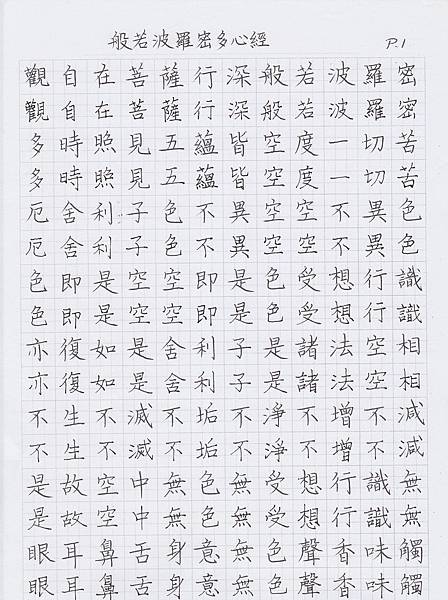 般若波羅密多心經 P.1
觀自在菩薩行深般若波羅密
觀自在菩薩行深般若波羅密
多時照見五蘊皆空度一切苦
多時照見五蘊皆空度一切苦
厄舍利子色不異空空不異色
厄舍利子色不異空空不異色
色即是空空即是色受想行識
色即是空空即是色受想行識
亦復如是舍利子是諸法空相
亦復如是舍利子是諸法空相
不生不滅不垢不淨不增不減
不生不滅不垢不淨不增不減
是故空中無色無受想行識無
是故空中無色無受想行識無
眼耳鼻舌身意無色聲香味觸
眼耳鼻舌身意無色聲香味觸